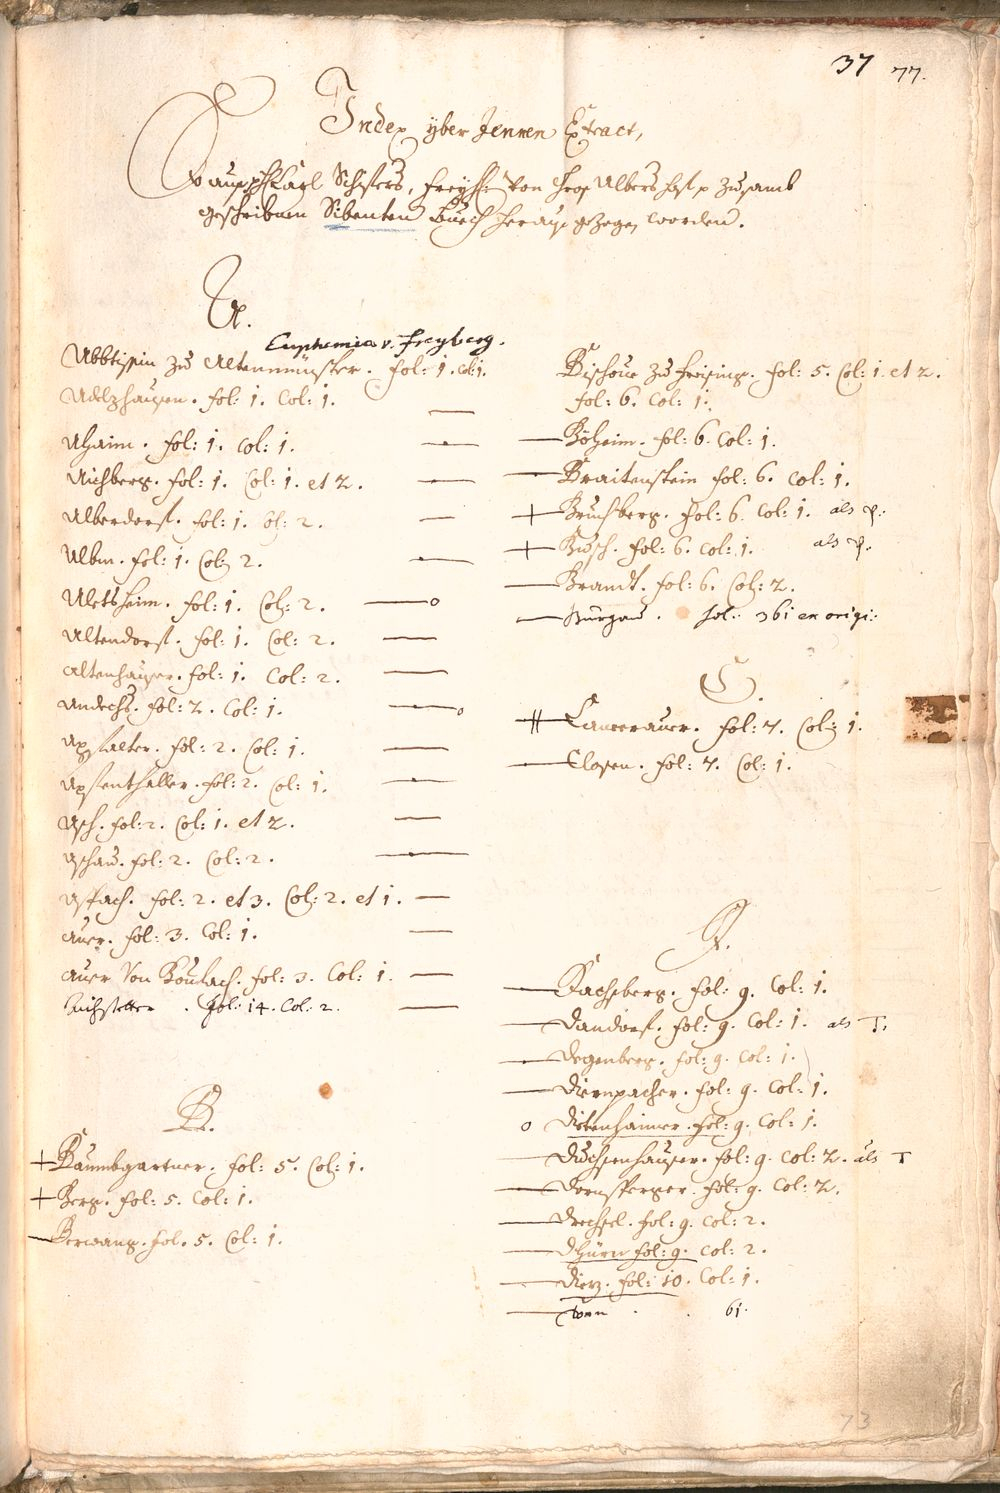 37 77.
Index yber Jennen Extract,
So auß H. Karl Schifers, Freyh: Von zusamb
geschribnen Sibenten Buech herauß gezogen worden.
A.
Euphemia v. Freyberg.
Abbtißin zu Altenmünster. fol: 1. col: 1.
Adelzhausen. fol: 1. Col: 1.
Ahaim. fol: 1. Col: 1.
Aichberg. fol: 1. Col: 1. et 2.
Alberdorf. fol: 1. Col: 2.
Albm. fol: 1. Col: 2.
fol: 1. Col: 2.
Altendorf. fol: 1. Col: 2.
Altenhauser. fol: 1. Col: 2.
Andechs. fol: 2. Col: 1.
Apfalter. fol: 2. Col: 1.
Apfenthaller. fol: 2. Col: 1.
Asch. fol: 2. Col: 1. et 2.
Aschau. fol: 2. Col: 2.
Aspach. fol: 2. et 3. Col: 2. et 1.
Auer. fol: 3. Col: 1.
Auer Von fol: 3. Col: 1.
Aichstetter. fol: 14. Col: 2.
B.
Baumbgartner. fol: 5. Col: 1.
Berg. fol: 5. Col: 1.
Berwang. fol. 5. Col: 1.
Bischove zu Freising. fol: 5. Col: 1. et 2.
fol: 6. Col: 1.
Böheim. fol: 6. Col: 1.
Braitenstein fol: 6. Col: 1.
Bruckberg. fol: 6. Col: 1. als P.
Busch. fol: 6. Col: 1. als P.
Brandt. fol: 6. Col: 2.
Burgau. fol: 361 ex origi:
C.
Camerauer. fol: 7. Col: 1.
Closen. fol: 7. Col: 1.
D.
Dachsberg. fol: 9. Col: 1.
Dandorf. fol: 9. Col: 1. als T.
Degenberg. fol: 9. Col: 1.
Diernpacher. fol: 9. Col: 1.
Dietenhaimer. fol: 9. Col: 1.
Duchsenhauser. fol: 9. Col: 2. als T
Dornsperger. fol: 9. Col: 2.
Drechsel. fol: 9. Col: 2.
Dhürn fol: 9. Col: 2.
fol: 10. Col: 1.
61.
73